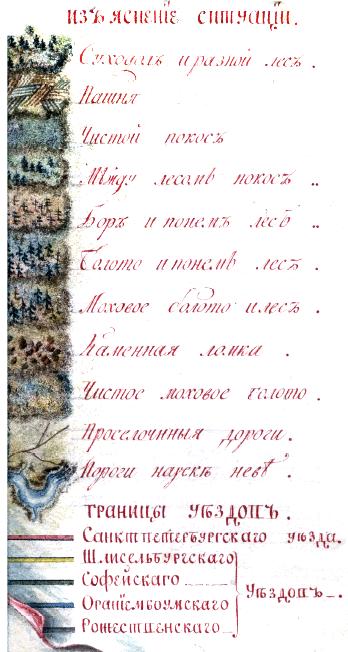 ИЗЪЯСНЕНIЕ СИТУАЦIИ.
Суходолъ и разной лесъ.
Пашня
Чистой покосъ
Мѣжду лесомъ покосъ ..
Боръ и понемъ лесъ ..
Болото и понемъ лесъ .
Моховое болото и лесъ .
Каменная ломка .
Чистое моховое болото .
Проселочныя дороги .
Пороги
ГРАНИЦЫ УѢЗДОВЪ .
Санктпетербургскаго уѣзда.
Шлисельбургскаго
Софейскаго
Уѣздовъ
Оранiембоумскаго
Рожественскаго